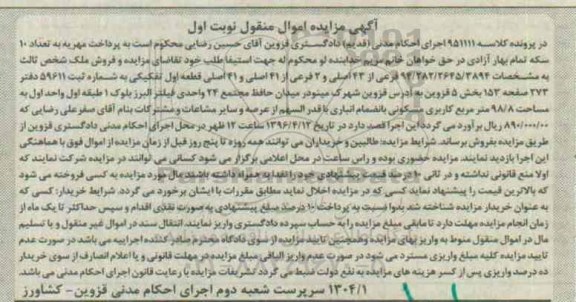 آگهی مزایده اموال منقول نوبت اول
در پرونده کلاسه ۹۵۱۱۱۱ اجرای احکام مدنی (قدیم) دادگستری قزوین آقای حسین رضایی محکوم است به پرداخت مهریه به تعداد ۱۰
سکه تمام بهار آزادی در حق خواهان خانم مریم خدابنده لو محکوم له جهت استیفا طلب خود تقاضای مزایده و فروش ملک شخص ثالث
به مشخصات فرعی از ۲۳ اصلی و ۲ فرعی از ۴۱ اصلی و ۴۱ اصلی قطعه اول تفکیکی به شماره ثبت ۵۹۶۱۱ دفتر
۲۷۳ صفحه ۱۵۳ بخش ۵ قزوین به آدرس قزوین شهرک مینودر میدان حافظ مجتمع ۲۴ واحدی فیلتر البرز بلوک ۱ طبقه اول واحد اول به
مساحت ۹۸/۸ متر مربع کاربری مسکونی بانضمام انباری با قدر السهم از عرصه و سایر مشاعات و مشترکات بنام آقای صفر علی رضایی که
۸۹۰/۰۰۰/۰۰ ریال برآورد می گردد این اجرا قصد دارد در تاریخ ۱۳۹۶/۴/۱۲ ساعت ۱۲ ظهر در محل اجرای احکام مدنی دادگستری قزوین از
طریق مزایده بفروش برساند. شرایط مزایده: طالبین و خریداران می توانند همه روزه تا پنج روز قبل از زمان مزایده از اموال فوق با هماهنگی
این اجرا بازدید نمایند. مزایده حضوری بوده و راس ساعت در محل اعلامی برگزار می شود کسانی می توانند در مزایده شرکت نمایند که
اولا منع قانونی نداشته و در ثانی ۱۰ درصد قیمت پیشنهادی خود را نقدا به همراه داشته باشند. مال مورد مزایده به کسی فروخته می شود
که بالاترین قیمت را پیشنهاد نماید کسی که در مزایده اخلال نماید مطابق مقررات با ایشان برخورد می گردد. شرایط خریدار: کسی که
به عنوان خریدار مزایده شناخته شد بدوا نسبت به پرداخت ۱۰ درصد مبلغ پیشنهادی به صورت نقدی اقدام و سپس حداکثر تا یک ماه از
زمان انجام مزایده مهلت دارد تا مابقی مبلغ مزایده را به حساب سپرده دادگستری واریز نمایند. انتقال سند در اموال غیر منقول و یا تسلیم
مال در اموال منقول منوط به واریز بهای مزایده و همچنین تایید مزایده از سوی دادگاه محترم صادر کننده اجراییه می باشد در صورت عدم
تایید مزایده کلیه مبالغ واریزی مسترد می شود در صورت عدم واریز الباقی مبلغ مزایده در مهلت قانونی و یا اعلام انصراف از سوی خریدار
ده درصد واریزی پس از کسر هزینه های مزایده به نفع دولت ضبط می گردد تشریفات مزایده با رعایت قانون اجرای احکام مدنی می باشد.
۱۳۰۴/۱ سرپرست شعبه دوم اجرای احکام مدنی قزوین- کشاورز